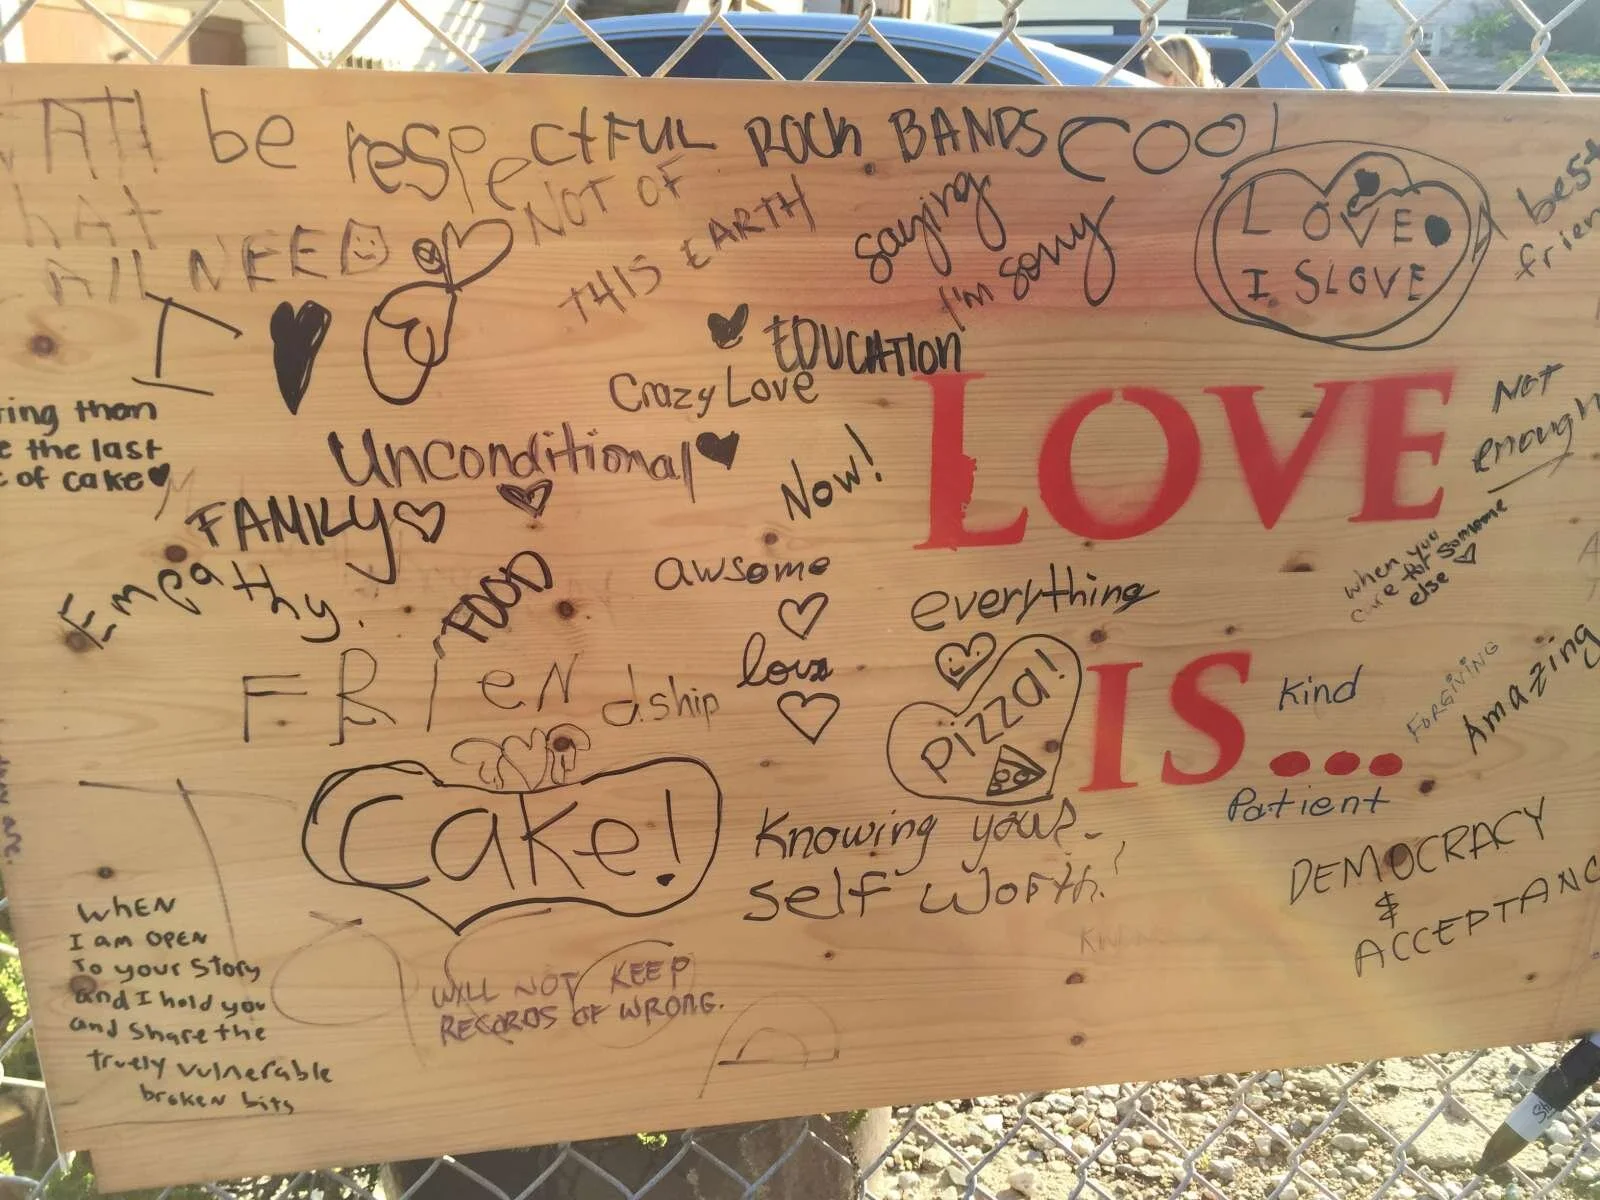 be respectful
ROCK BANDS
cool
hAt
All NEED
NOT OF
THIS EARTH
saying
I'm sorry
LOVE
I SLOVE
best
I
EDUCATION
Crazy Love
Unconditional
Now!
LOVE
Not
enough
than
the last
of cake
FAMILY
Empathy.
FOOD
awsome
love
everything
when you
care for someone
else
FRIENdship
Pizza!
IS...
Kind
FORGIVING
Amazing
Patient
Cake!
Knowing your
self worth!
DEMOCRACY
&
ACCEPTANC
WHEN
I am OPEN
To your Story
and I hold you
and share the
truely vulnerable
broken bits
WILL NOT KEEP
RECORDS OF WRONG.